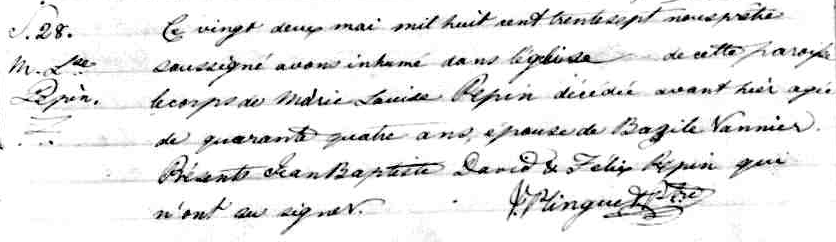 S. 28.
M. Lse
Pepin.
Ce vingt deux mai mil huit cent trente sept nous prêtre
soussigné avons inhumé dans l'église de cette paroisse
le corps de Marie Louise Pepin décédée avant hier agée
de quarante quatre ans, épouse de Bazile Vannier.
Présents Jean Baptiste David & Felix Pepin qui
n'ont su signer.
Ptre